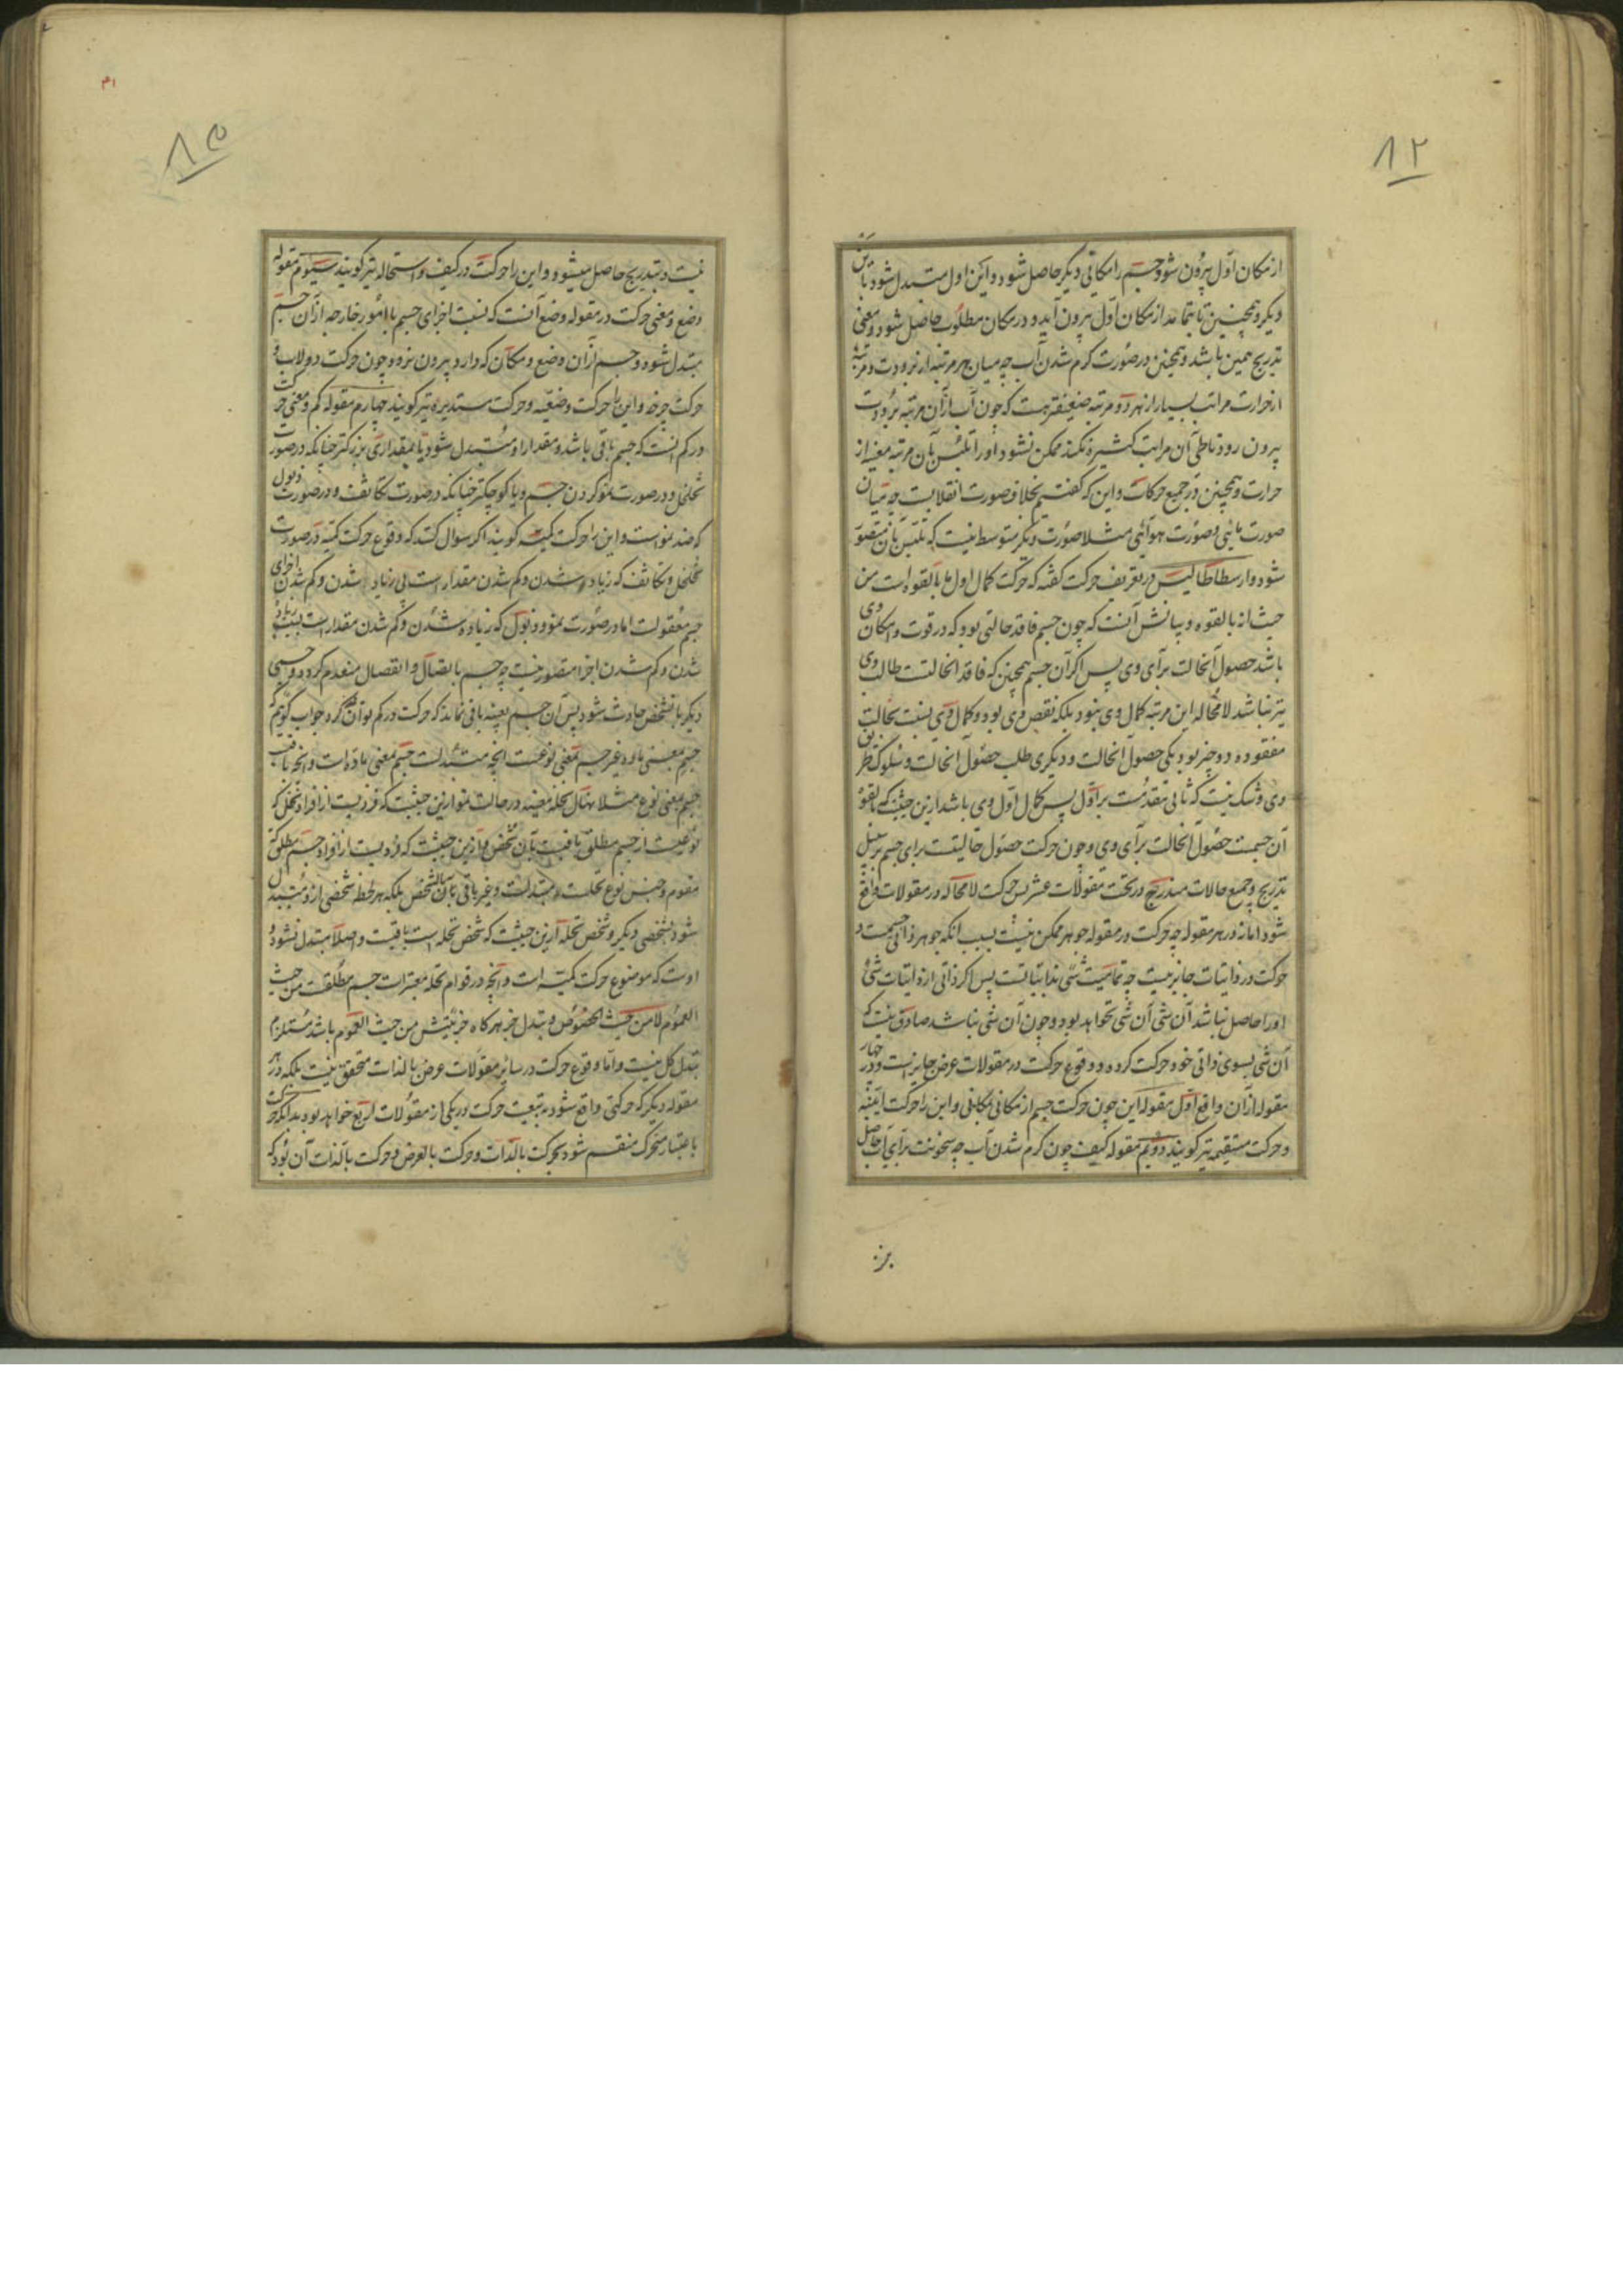 ۸۲
از مکان اول بیرون شود و جسم را مکانی دیگر حاصل شود و این اول متبدل شود باین
دیگر و همچنین تا بتمامه از مکان اول بیرون آید و در مکان مطلوب حاصل شود و معنی
تدریج همین باشد و همچنین در صورت کرم شدن آب چه میان هر مرتبه از برودت و مرتبه
از حرارت مراتب بسیار از هر دو مرتبه ضعیفتر هست که چون آب از آن مرتبه برودت
بیرون رود تا طی آن مراتب کثیره نکند ممکن نشود او را تلبس بآن مرتبه معینه از
حرارت و همچنین در جمیع حرکات و این که کفتیم بخلاف صورت انقلابست چه میان
صورت مائی و صورت هوائی مثلا صورت دیکر متوسط نیست که تلبس بآن متصور
شود و ارسطاطالیس در تعریف حرکت کفته که حرکت کمال اول ما بالقوه است من
حیث انه بالقوه و بیانش آنست که چون جسم فاقد حالتی بود که در قوت و امکان وی
باشد حصول آنحالت برای وی پس اکر آن جسم همچنین که فاقد آنحالتست طالب وی
نیز نباشد لامحاله این مرتبه کمال وی نبود بلکه نقص وی بود و کمال وی بنسبت بحالت
مفقوده دو چیز بود یکی حصول آنحالت و دیکری طلب حصول آنحالت و سلوک طریق
وی و شک نیست که ثانی مقدمست بر اول پس کمال اول وی باشد ازین حیثیت که بالقوه
آن جسمست حصول آنحالت برای وی و چون حرکت حصول حالیتست برای جسم بر سبیل
تدریج و جمیع حالات مندرج در تحت مقولات عشر پس حرکت لامحاله در مقولات واقع
شود اما نه در هر مقوله چه حرکت در مقوله جوهر ممکن نیست بسبب آنکه جوهر ذاتی جسمست و
حرکت در ذاتیات جایز نیست چه تمامیت شی بذاتیاتست پس اکر ذاتی از ذاتیات شی
او را حاصل نباشد آن شی آن شی نخواهد بود و چون آن شی نباشد صادق نیست که
آن شی بسوی ذاتی خود حرکت کرده و وقوع حرکت در مقولات عرض جایز است و در چهار
مقوله از آن واقع اول مقوله این چون حرکت جسم از مکانی بمکانی و این را حرکت اینیه
و حرکت مستقیمه نیز کویند دویم مقوله کیف چون کرم شدن آب چه سخونت برای آب حاصل
نیست و بتدریج حاصل میشود و این را حرکت در کیف و استحاله نیز کویند سیوم مقوله
وضع و معنی حرکت در مقوله وضع آنست که نسبت اجزای جسم با امور خارجه از آن جسم
متبدل شود و جسم از آن وضع و مکان که دارد بیرون نرود چون حرکت دولاب و
حرکت چرخ و این را حرکت وضعیه و حرکت مستدیره نیز کویند چهارم مقوله کم و معنی حرکت
در کم آنست که جسم باقی باشد و مقدار او متبدل شود یا بمقداری بزرکتر چنانکه در صورت
تخلخل و در صورت نمو کردن جسم و یا کوچکتر چنانکه در صورت تکاثف و در صورت ذبول
که ضد نمو است و این را حرکت کمیه کویند اکر سوال کنند که وقوع حرکت کمیه در صورت
تخلخل و تکاثف که زیاده شدن و کم شدن مقدار است بی زیاده شدن و کم شدن اجزای
جسم معقولست اما در صورت نمو و ذبول که زیاده شدن و کم شدن مقدار است بسبب زیاده
شدن و کم شدن اجزا متصور نیست چه جسم باتصال و انفصال منعدم کردد و جسمی
دیکر بالشخص حادث شود پس آن جسم بعینه باقی نماند که حرکت در کم تواند کرد جواب کوئیم که
جسم بمعنی ماده غیر جسم بمعنی نوعست آنچه متبدلست جسم بمعنی ماده است و آنچه باقیست
جسم بمعنی نوع مثلا نهال نخله معینه در حالت نمو ازین حیثیت که فردیست از افراد نخل که
نوعیست از جسم مطلق باقیست بآن شخص و ازین حیثیت که فردیست از افراد جسم مطلق که
مقوم و جنس نوع نخلست متبدلست و غیر باقی بآن شخص بلکه هر لحظه شخصی از و متبدل
شود بشخصی دیکر و شخص نخله ازین حیثیت که شخص نخله است باقیست و اصلا متبدل نشود و
اوست که موضوع حرکت کمیه است و آنچه در قوام نخله معتبر است جسم مطلقست من حیث
العموم لا من حیث الخصوص و تبدل جزء هر کاه جزئیتش من حیث العموم باشد مستلزم
تبدل کل نیست و اما وقوع حرکت در سائر مقولات عرض بالذات متحقق نیست بلکه در هر
مقوله دیکر که حرکتی واقع شود به تبعیت حرکت در یکی از مقولات اربع خواهد بود بدانکه حرکت
باعتبار متحرک منقسم شود بحرکت بالذات و حرکت بالعرض و حرکت بالذات آن بود که